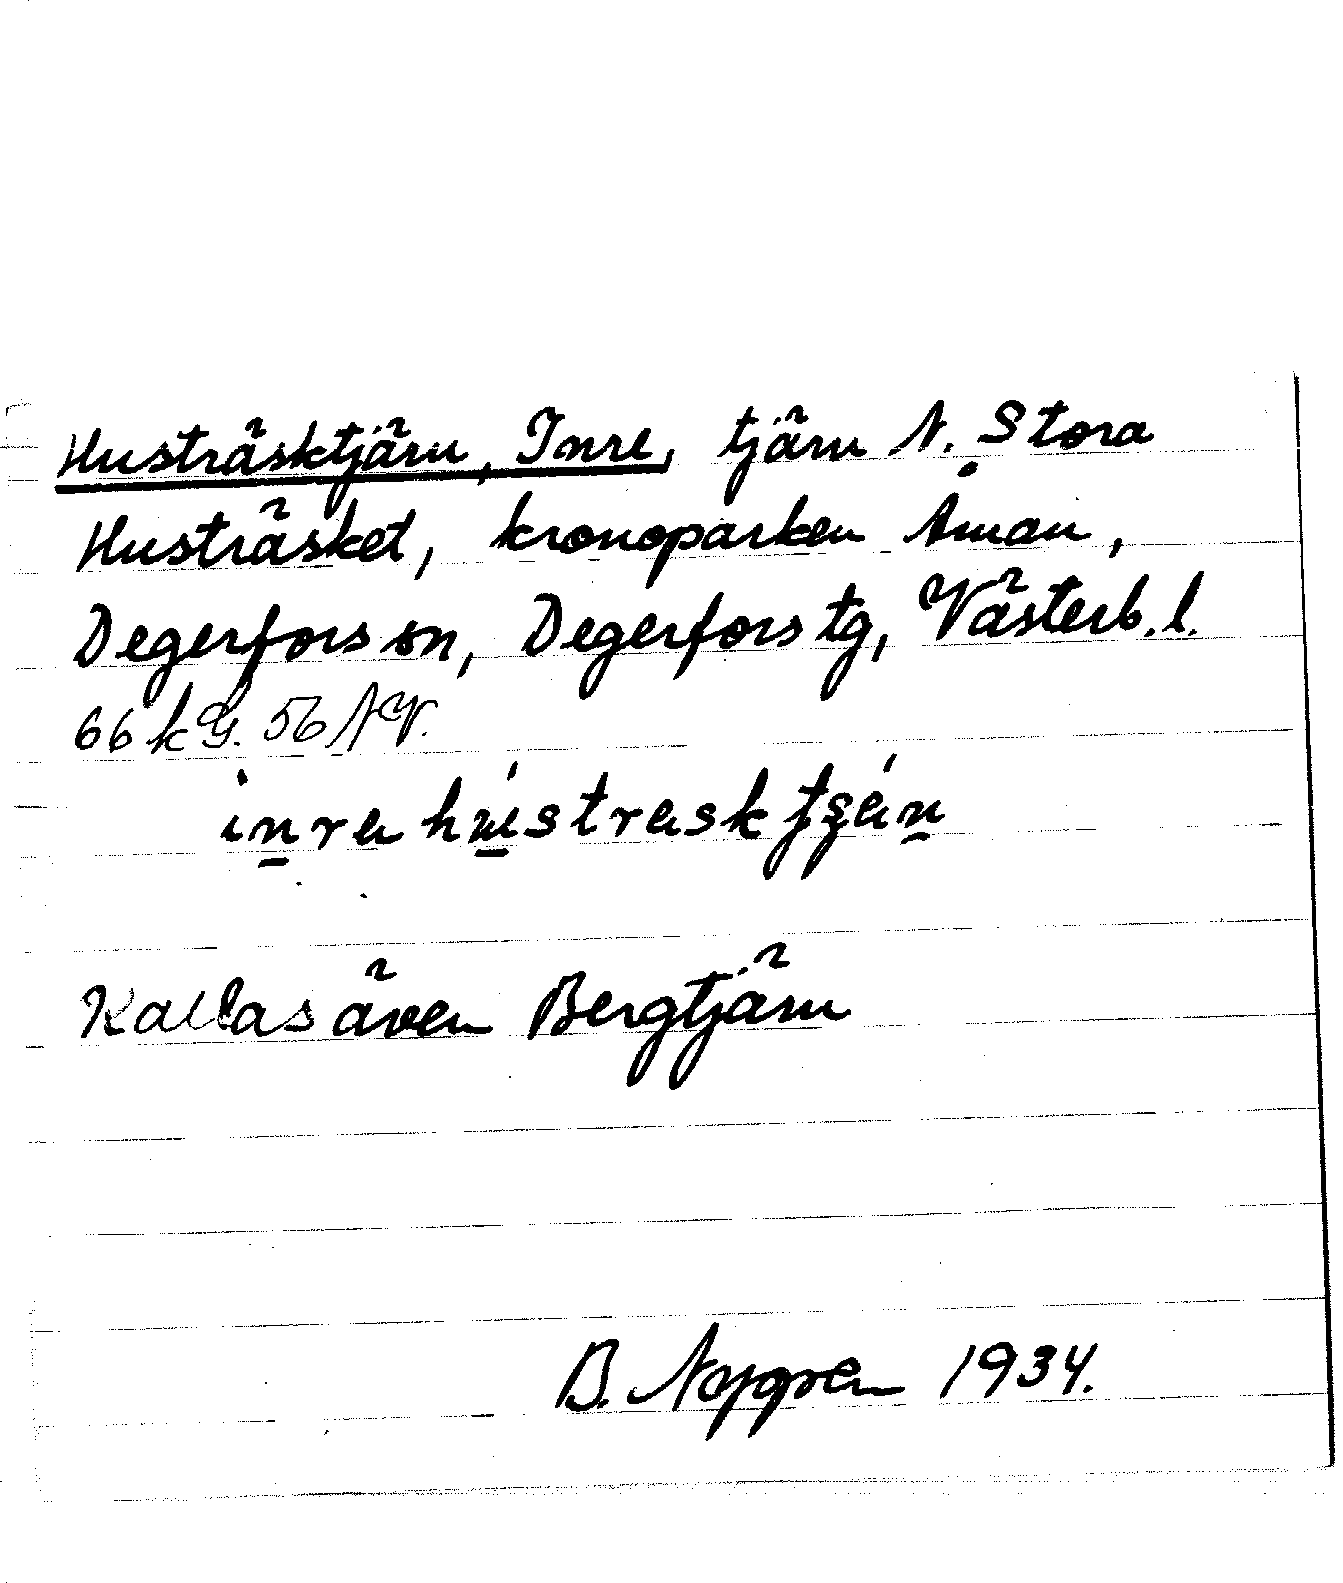 Husträsktjärn, Inre, tjärn N. Stora
Husträsket, kronoparken Åman,
Degerfors sn, Degerfors tg, Västerb. l.
66 k G. 56 NV.
Kallas även Bergtjärn
B. Nygren 1934.